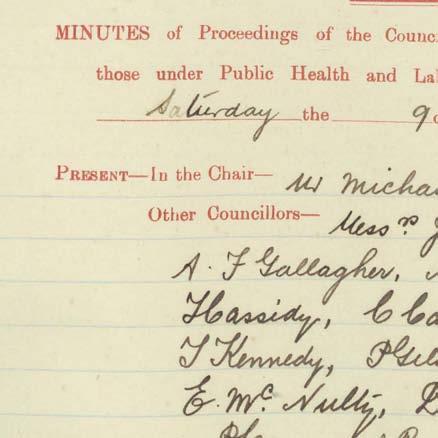 MINUTES of Proceedings of the Counc
those under Public Health and La
Saturday the 9
PRESENT—In the Chair— Mr Micha
Other Councillors— Messrs J
A. F Gallagher,
H Cassidy, C Ca
T Kennedy, P Gil
E. Mc. Nulty,